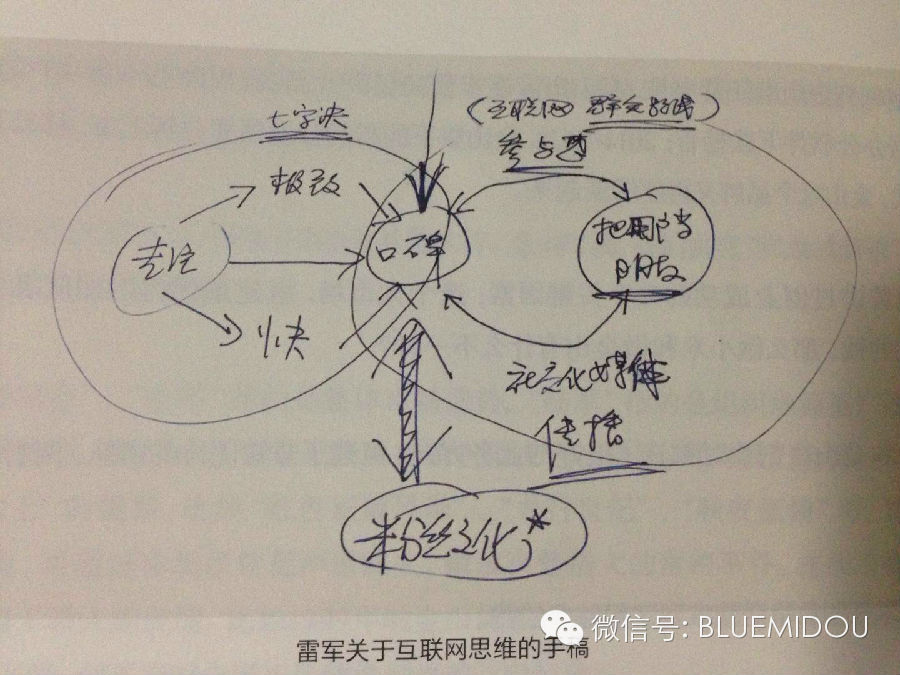 七字决
(互联网 群众路线)
参与感
极致
专注
快
口碑
把用户当
朋友
社交化媒体
传播
粉丝文化*
微信号: BLUEMIDOU
雷军关于互联网思维的手稿